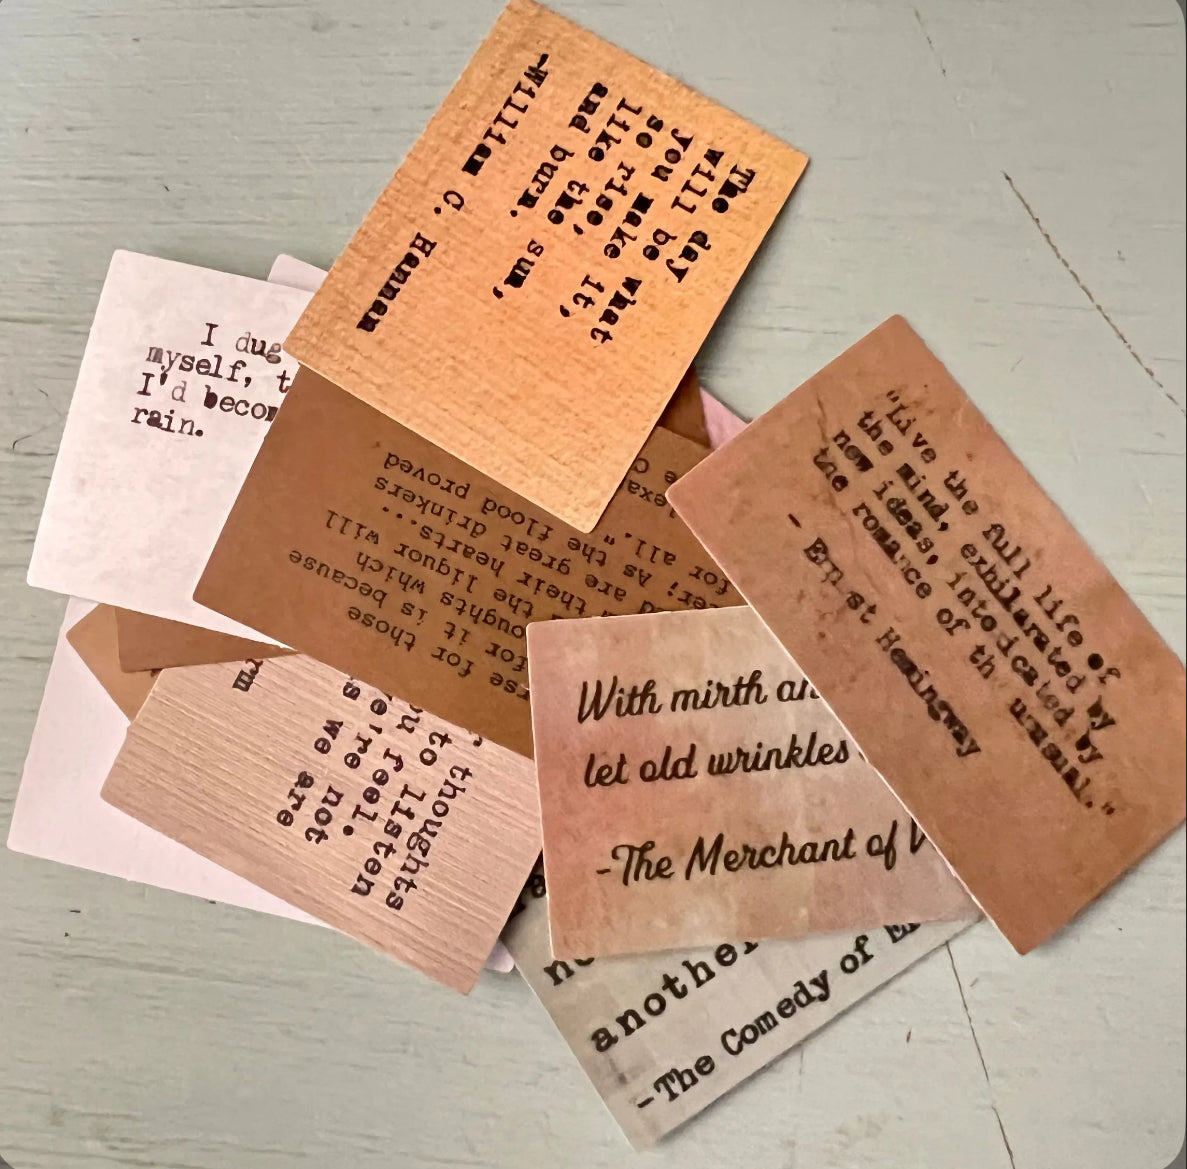 The day
will be what
you make it,
so rise,
like the sun,
and burn.
-William C. Hannan
I dug
myself, t
I'd becom
rain.
rse for those
for it is because
oughts which
the liquor will
their hearts...
d are great drinkers
er; As the flood proved
for all."
lexa
e C
"Live the full life of
the mind, exhilarated by
new ideas, intoxicated by
the romance of the unusual."
- Ernest Hemingway
With mirth an
let old wrinkles
-The Merchant of V
r thoughts
to listen
ou feel.
're not
s we are
rm
no
another
-The Comedy of Er